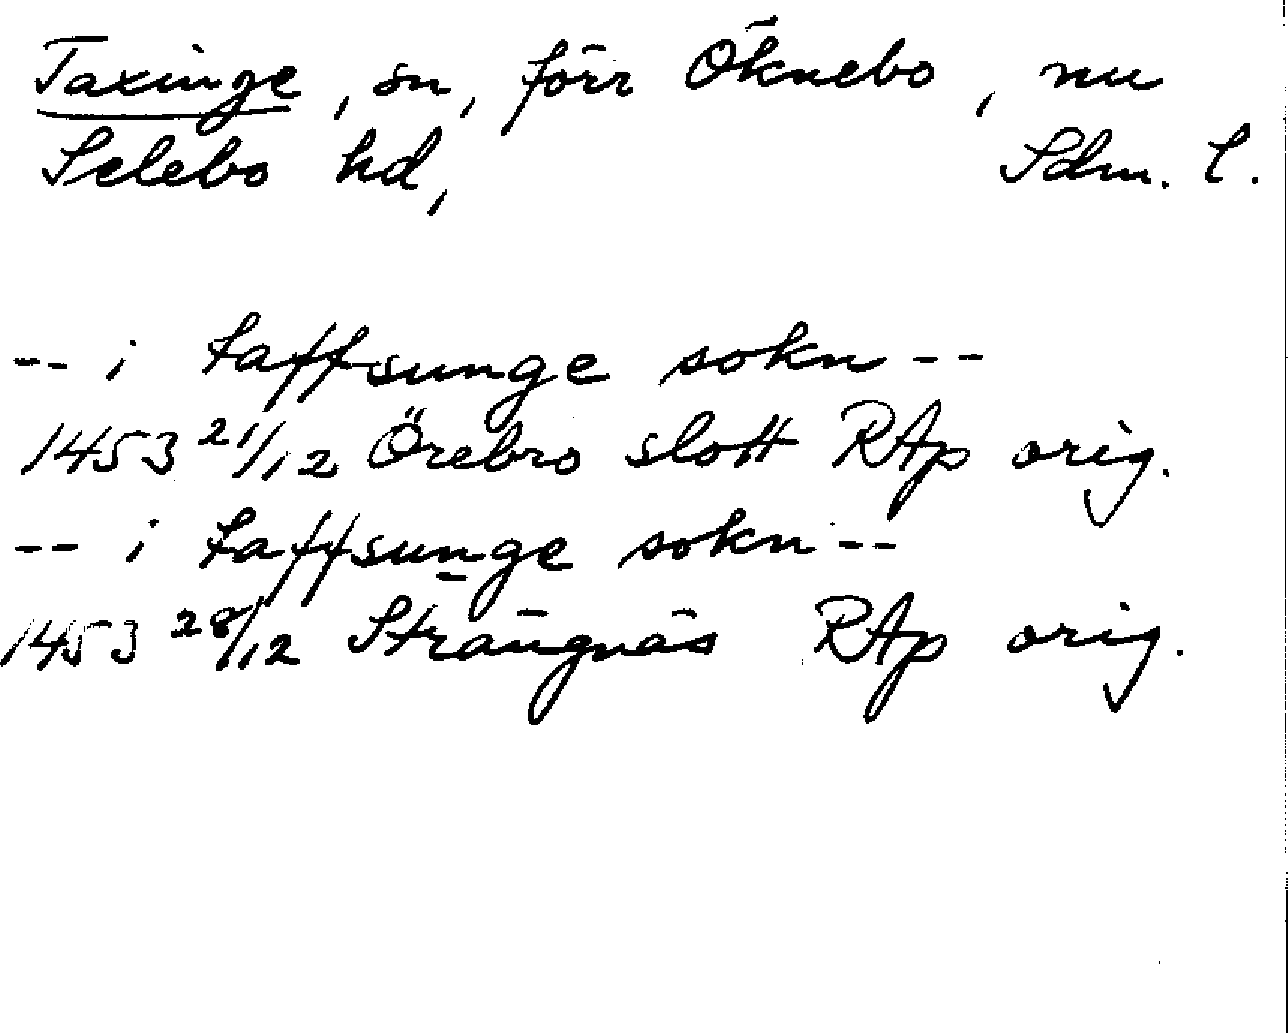 Taxinge, sn, förr Öknebo, nu
Selebo hd, Sdm. l.
-- i taffsunge sokn --
1453 21/12 Örebro slott RAp orig.
-- i taffsunge sokn --
1453 28/12 Strängnäs RAp orig.